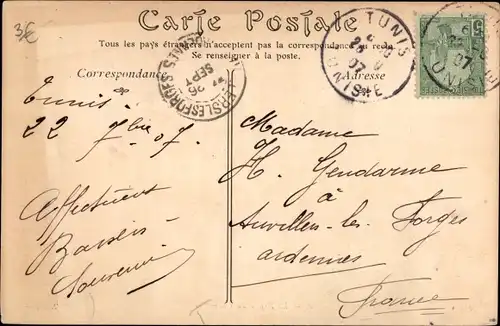 3€
Carte Postale
Tous les pays étrangers n'acceptent pas la correspondance au recto.
Se renseigner à la poste.
Correspondance
Adresse
TUNIS
TUNISIE
5
Tunis.
22 7bre 07.
Affectueux
Baisers
Souvenir
Madame
H. Gendarme
à
Auvillers-les-Forges
ardennes
France